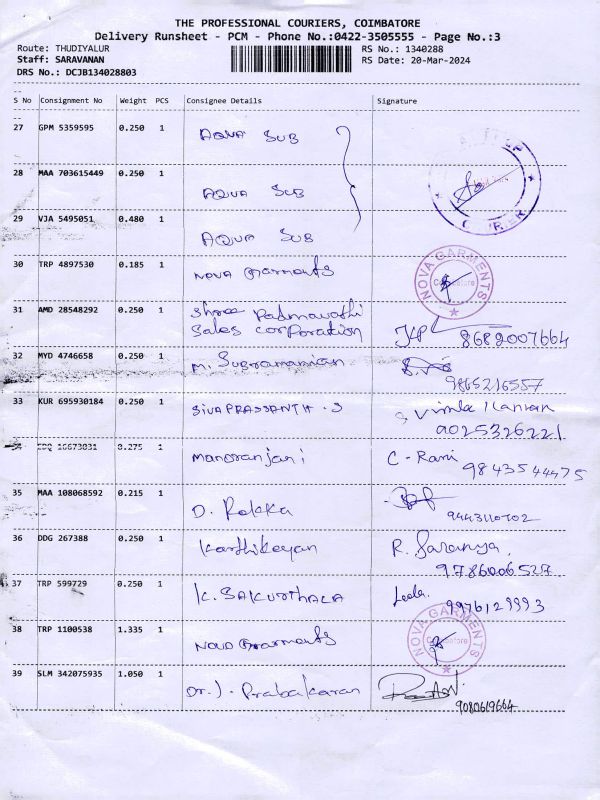 THE PROFESSIONAL COURIERS, COIMBATORE
Delivery Runsheet - PCM - Phone No.:0422-3505555 - Page No.:3
Route: THUDIYALUR
RS No.: 1340288
Staff: SARAVANAN
RS Date: 20-Mar-2024
DRS No.: DCJB134028803
S No Consignment No Weight PCS Consignee Details Signature
27 GPM 5359595 0.250 1 AQUA SUB
28 MAA 703615449 0.250 1 AQUA SUB
29 VJA 5495051 0.480 1 AQUA SUB
COURIER
30 TRP 4897530 0.185 1 Nova Garments
NOVA GARMENTS
Coimbatore
31 AMD 28548292 0.250 1 Shree Padmavathi
Sales Corporation 8682007664
32 MYD 4746658 0.250 1 M. Subramanian
9865216557
33 KUR 695930184 0.250 1 SIVAPRASSANTH.S
9025326221
0.275 1 Manoranjani C-Rani 9843544475
35 MAA 108068592 0.215 1 D. Rekka
9443110702
36 DDG 267388 0.250 1 Karthikeyan R. Saranya,
9786006527
37 TRP 599729 0.250 1 K. SAKUNTHALA Leela. 9976129993
38 TRP 1100538 1.335 1 Nova Garments
NOVA GARMENTS
Coimbatore
39 SLM 342075935 1.050 1 Dr. J. Prabakaran
9080619664